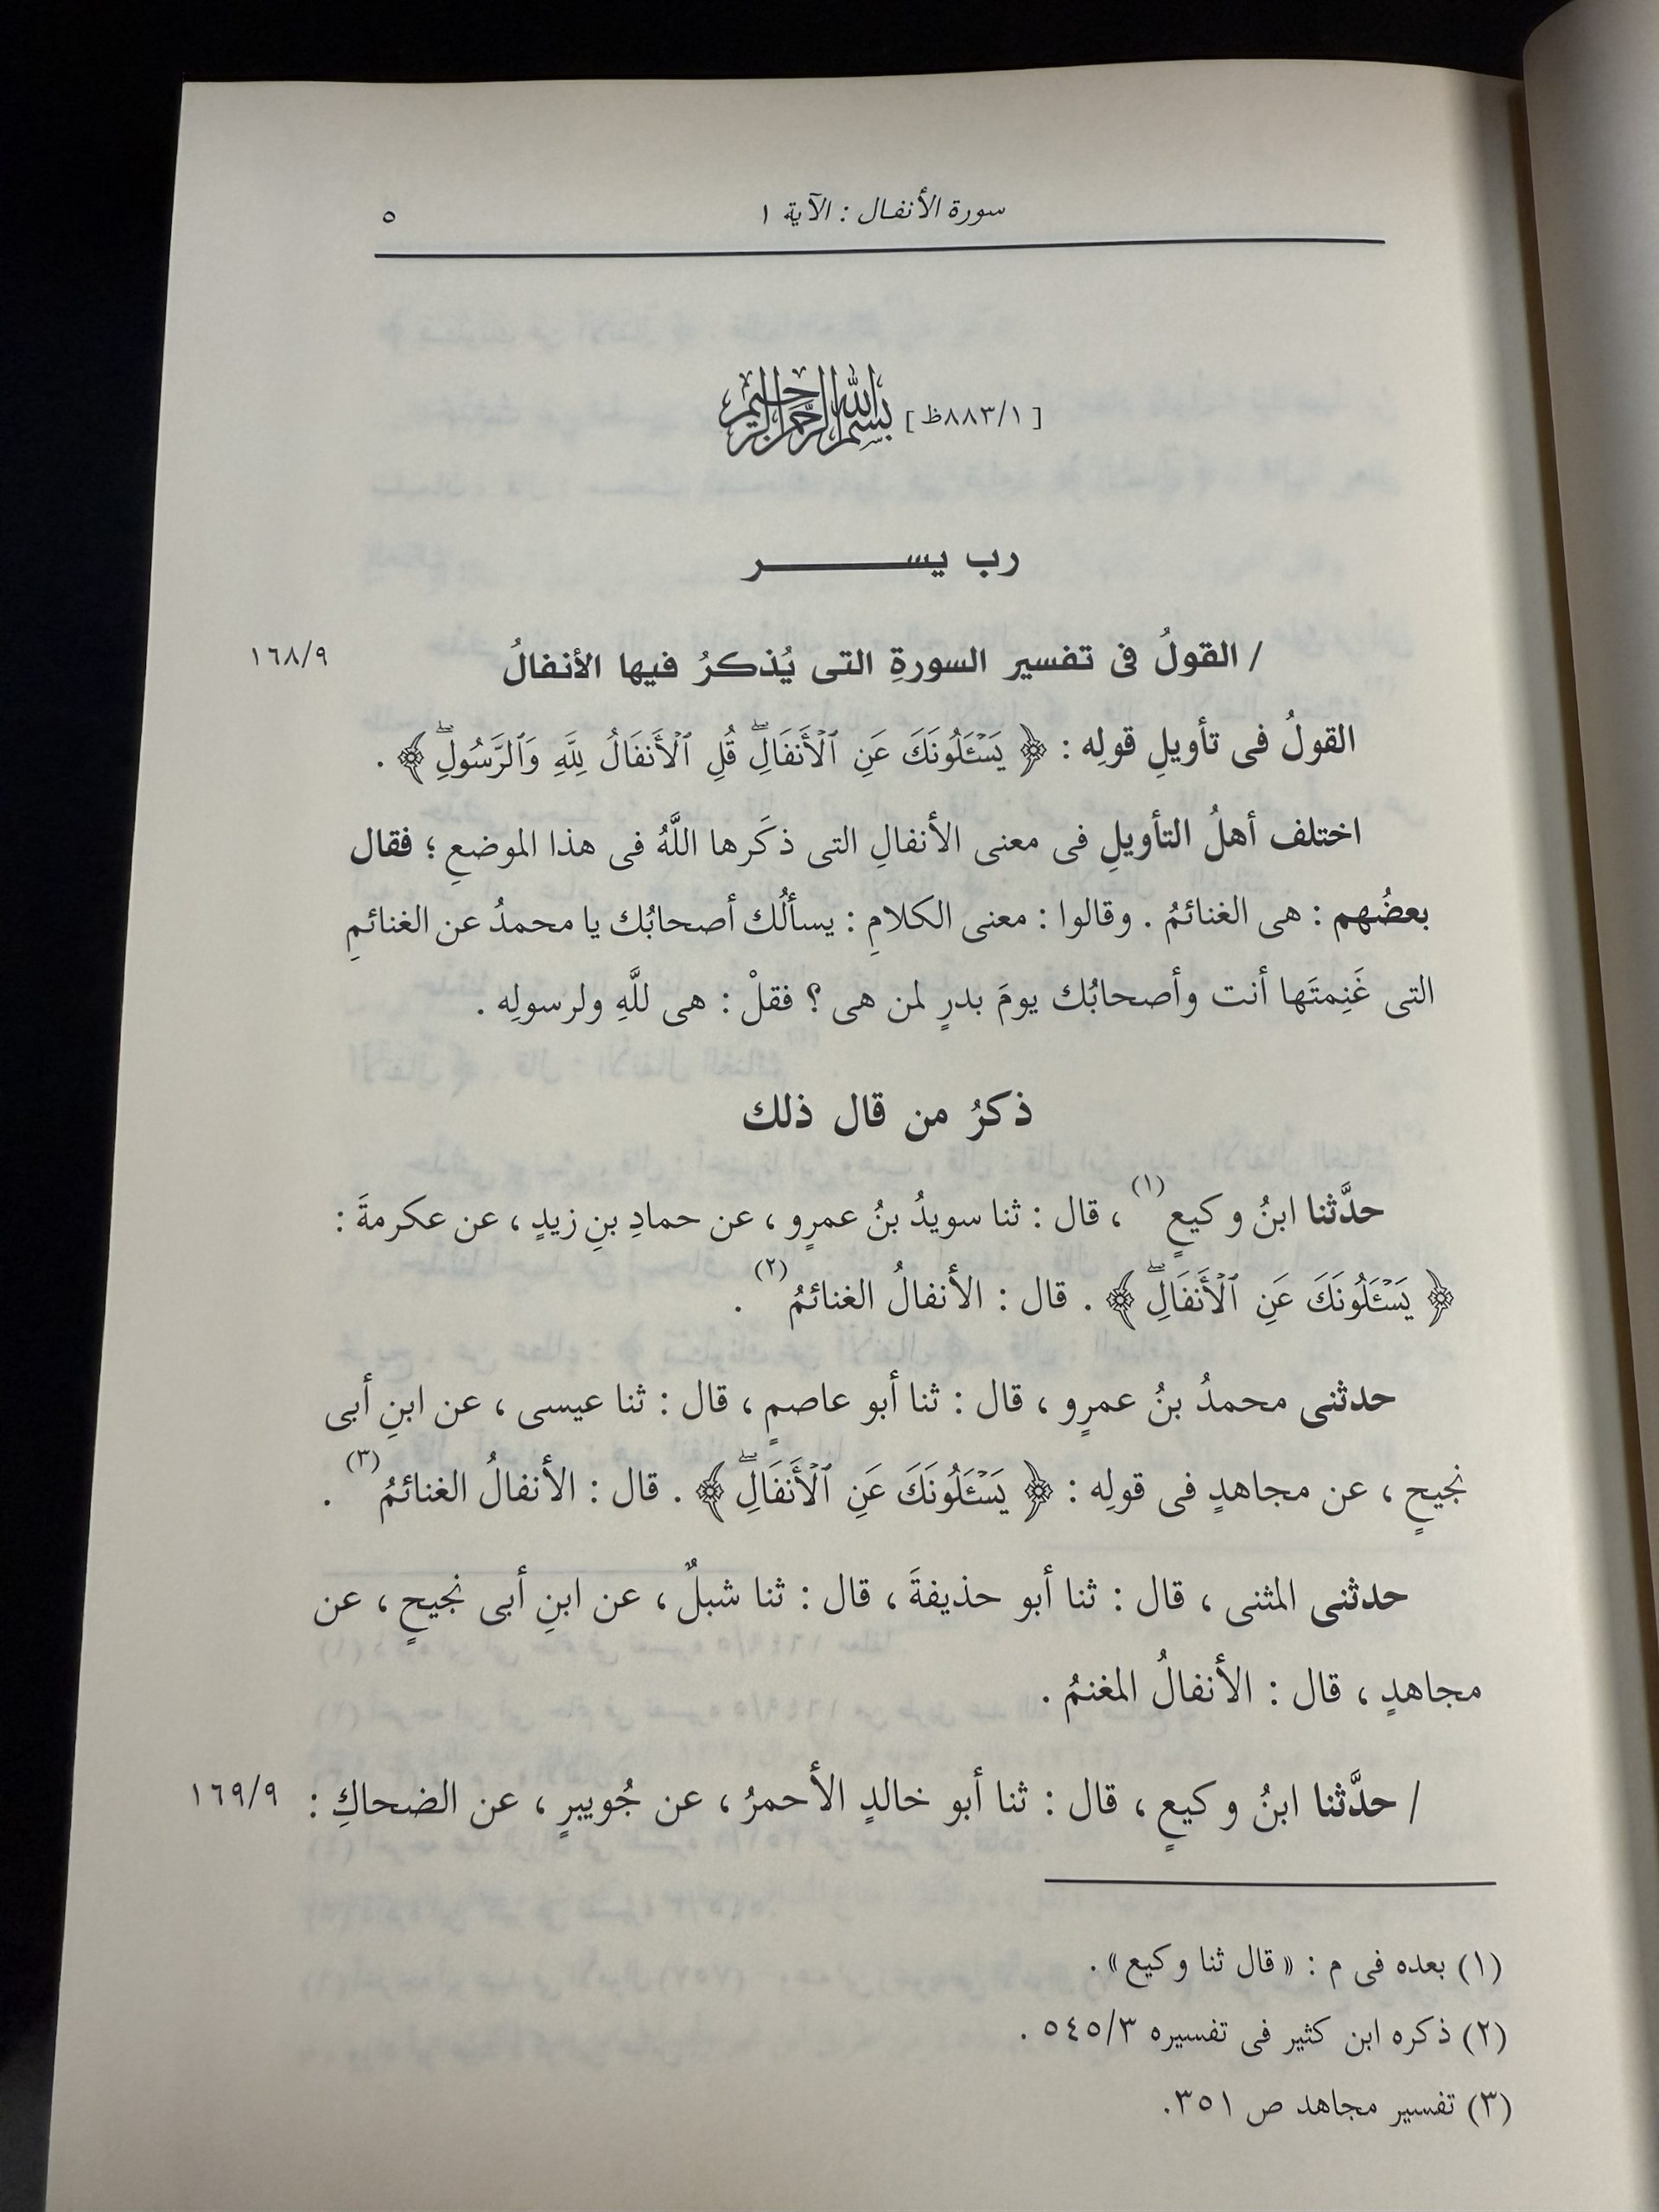 سورة الأنفال : الآية ١ ٥
[ ٨٨٣/١ظ ] بسم الله الرحمن الرحيم
رب يســـــــــر
/ القولُ فى تفسير السورةِ التى يُذكرُ فيها الأنفالُ ١٦٨/٩
القولُ فى تأويلِ قولِه : ﴿ يَسْـَٔلُونَكَ عَنِ ٱلْأَنفَالِۖ قُلِ ٱلْأَنفَالُ لِلَّهِ وَٱلرَّسُولِۖ ﴾ .
اختلف أهلُ التأويلِ فى معنى الأنفالِ التى ذكَرها اللَّهُ فى هذا الموضعِ ؛ فقال
بعضُهم : هى الغنائمُ . وقالوا : معنى الكلامِ : يسألُك أصحابُك يا محمدُ عن الغنائمِ
التى غَنِمتَها أنت وأصحابُك يومَ بدرٍ لمن هى ؟ فقلْ : هى للَّهِ ولرسولِه .
ذكرُ من قال ذلك
حدَّثنا ابنُ وكيعٍ (١) ، قال : ثنا سويدُ بنُ عمرٍو ، عن حمادِ بنِ زيدٍ ، عن عكرمةَ :
﴿ يَسْـَٔلُونَكَ عَنِ ٱلْأَنفَالِۖ ﴾ . قال : الأنفالُ الغنائمُ (٢) .
حدثنى محمدُ بنُ عمرٍو ، قال : ثنا أبو عاصمٍ ، قال : ثنا عيسى ، عن ابنِ أبى
نجيحٍ ، عن مجاهدٍ فى قولِه : ﴿ يَسْـَٔلُونَكَ عَنِ ٱلْأَنفَالِۖ ﴾ . قال : الأنفالُ الغنائمُ (٣) .
حدثنى المثنى ، قال : ثنا أبو حذيفةَ ، قال : ثنا شبلٌ ، عن ابنِ أبى نجيحٍ ، عن
مجاهدٍ ، قال : الأنفالُ المغنمُ .
/ حدَّثنا ابنُ وكيعٍ ، قال : ثنا أبو خالدٍ الأحمرُ ، عن جُويبرٍ ، عن الضحاكِ : ١٦٩/٩
(١) بعده فى م : « قال ثنا وكيع » .
(٢) ذكره ابن كثير فى تفسيره ٥٤٥/٣ .
(٣) تفسير مجاهد ص ٣٥١.